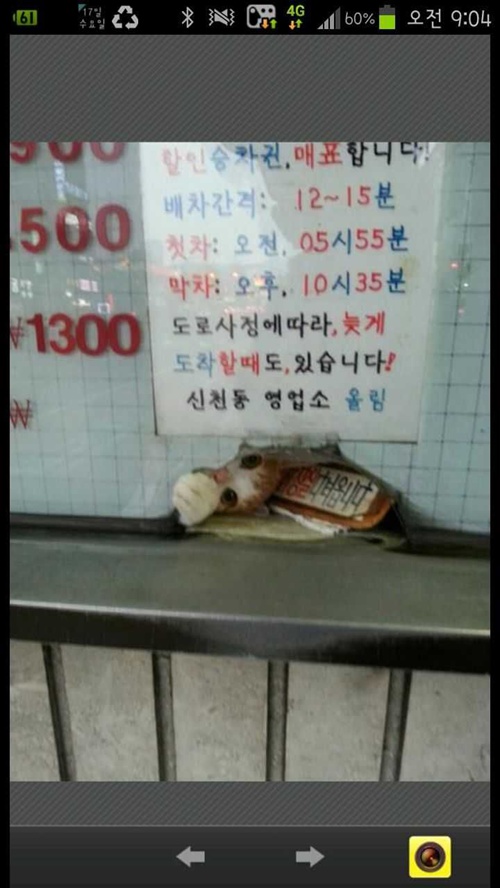 61
17일
수요일
4G
60%
오전 9:04
900
할인승차권, 매표합니다!
배차간격: 12~15분
.500
첫차: 오전, 05시55분
막차: 오후, 10시35분
₩1300
도로사정에따라, 늦게
도착할때도, 있습니다!
₩
신천동 영업소 올림